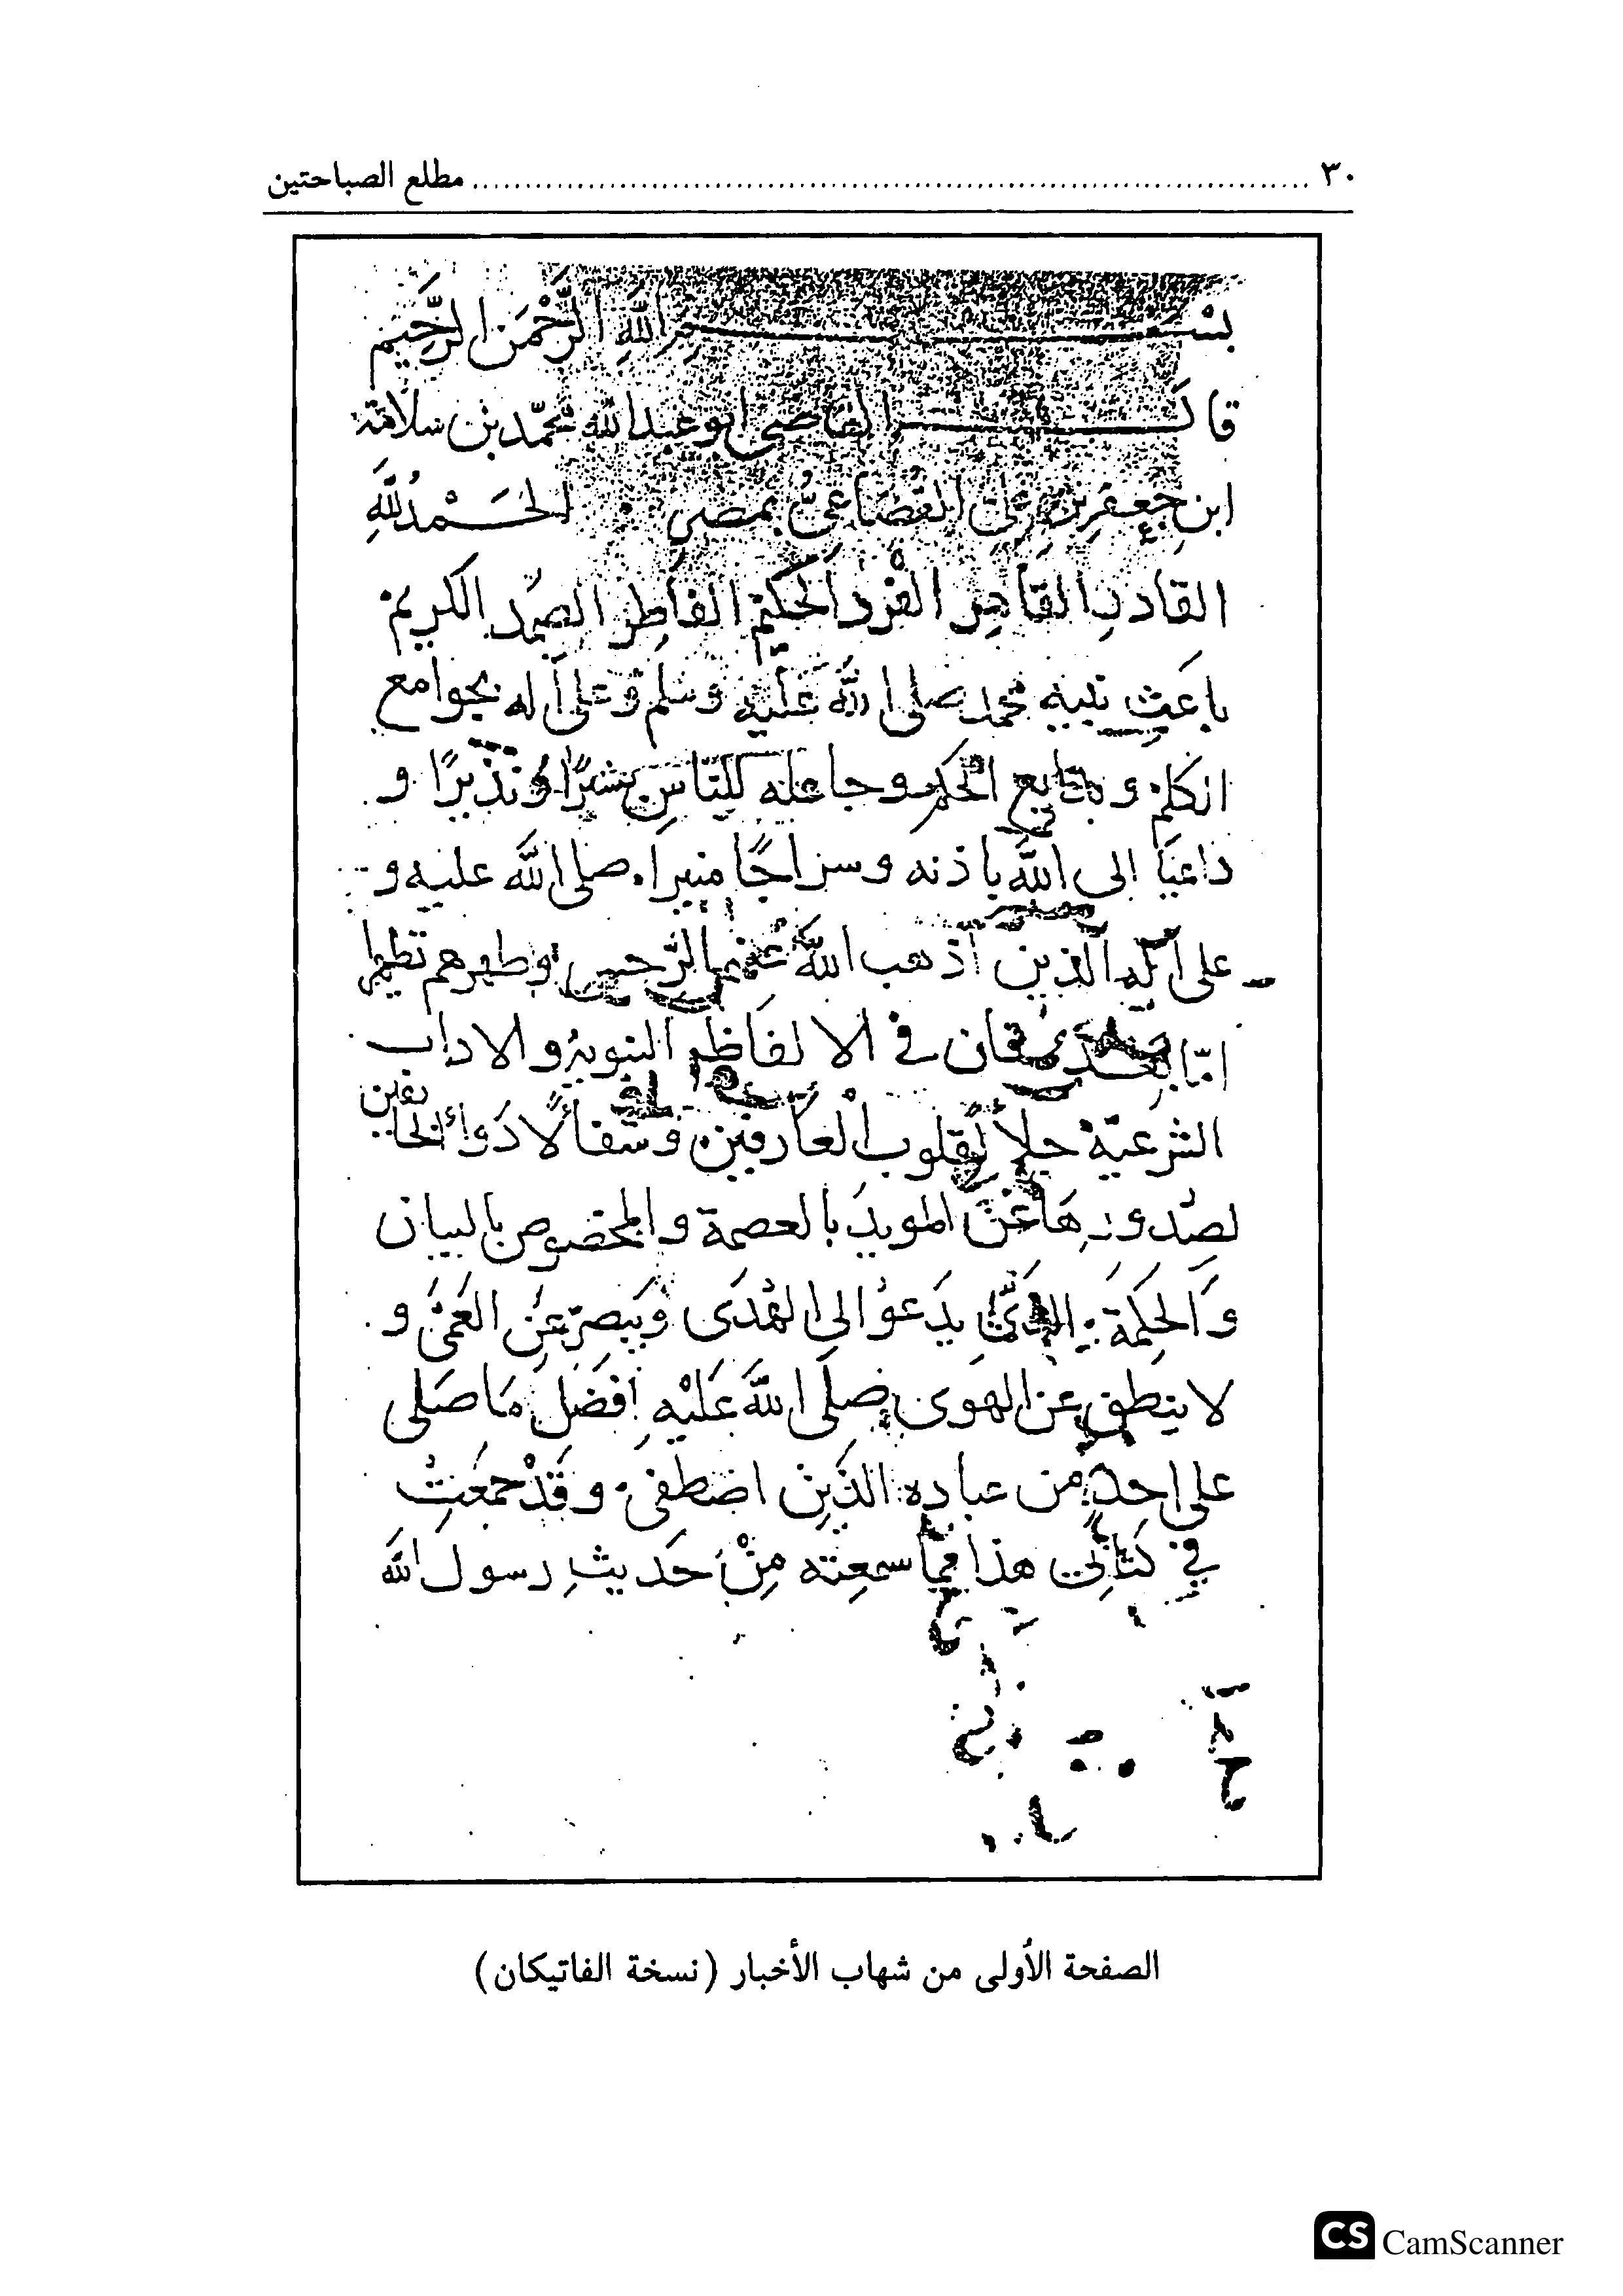 ٣٠ ........ مطلع الصباحتين
بسم الله الرحمن الرحيم
قال القاضي ابو عبد الله محمد بن سلامة
ابن جعفر بن علي القضاعي بمصر الحمد لله
القادر القاهر الفرد الحكيم الفاطر الصمد الكريم
باعث نبيه محمد صلى الله عليه وسلم وعلى اله بجوامع
الكلم و الحكم وجاعله للناس بشيرًا ونذيرًا و
داعيًا الى الله باذنه وسراجًا منيرا صلى الله عليه و
على اله الذين اذهب الله عنهم الرجس وطهرهم تطهيرا
امّا بعد فان في الالفاظ النبوية والاداب
الشرعية جلا لقلوب العارفين وشفا لادواء الخائفين
لصدورها عن المويد بالعصمة والمخصوص بالبيان
والحكمة الذي يدعو الى الهدى ويبصر عن العمى و
لا ينطق عن الهوى صلى الله عليه افضل ما صلى
على احد من عباده الذين اصطفى وقد جمعت
في كتابي هذا مما سمعته من حديث رسول الله
الصفحة الأولى من شهاب الأخبار (نسخة الفاتيكان)
CS CamScanner